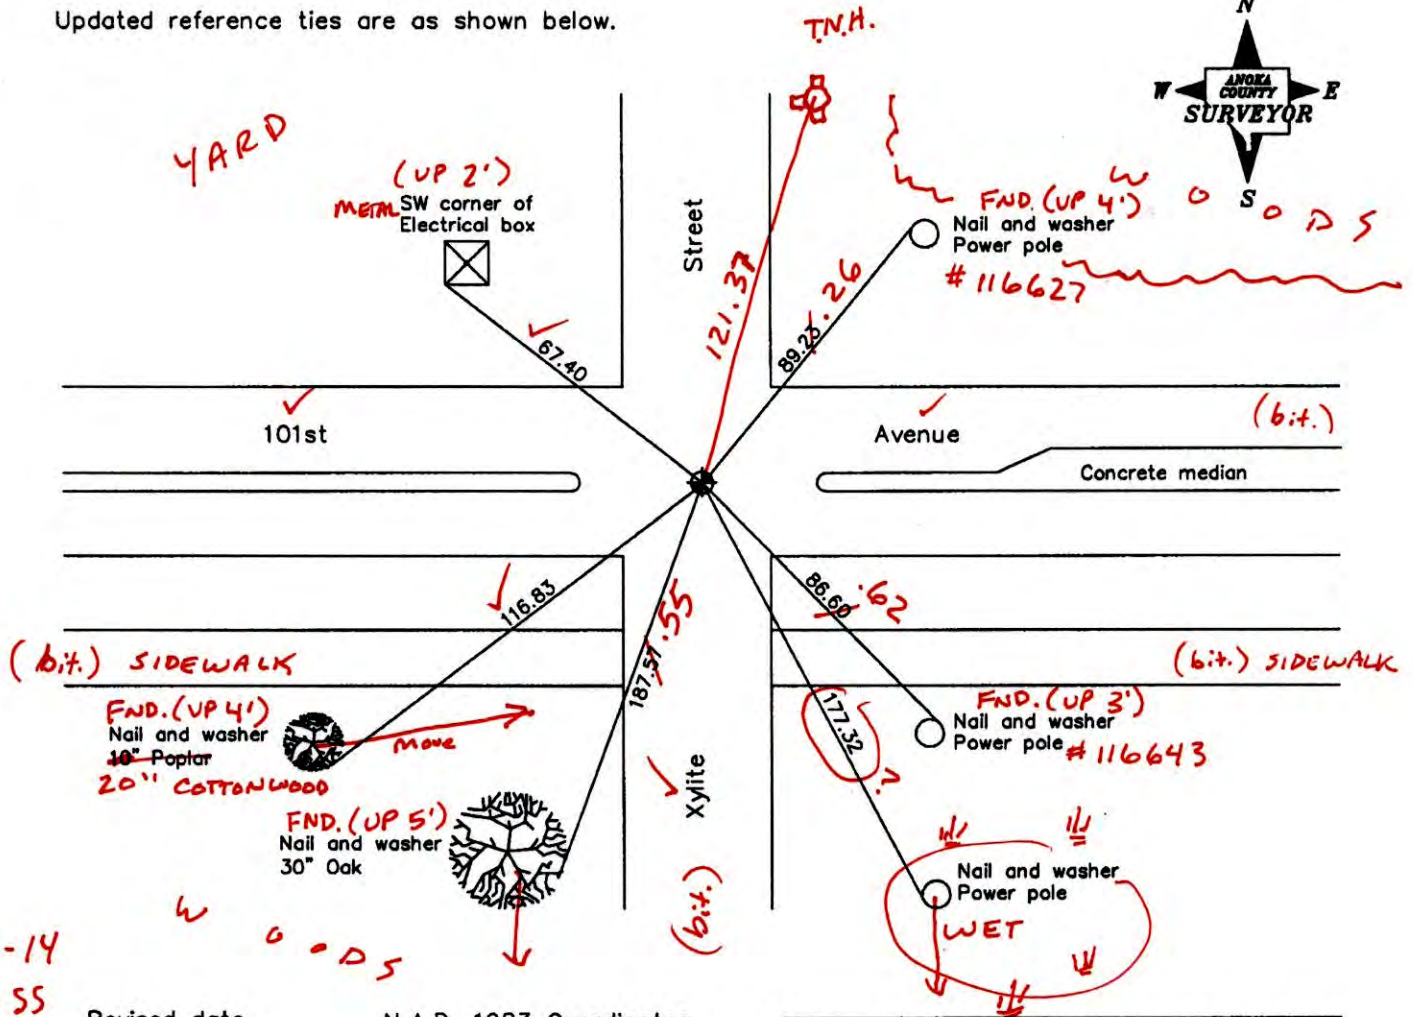 Updated reference ties are as shown below.
T.N.H.
N
W
ANOKA
COUNTY
SURVEYOR
E
S
YARD
(UP 2')
METAL SW corner of
Electrical box
Street
FND. (UP 4')
Nail and washer
Power pole
#116627
WOODS
121.37
89.23 .26
67.40
101st
Avenue
(bit.)
Concrete median
116.83
187.57 .55
86.60 .62
177.32
?
(bit.) SIDEWALK
(bit.) SIDEWALK
FND. (UP 4')
Nail and washer
10" Poplar
20" COTTONWOOD
Move
FND. (UP 3')
Nail and washer
Power pole #116643
Xylite
(bit.)
FND. (UP 5')
Nail and washer
30" Oak
Nail and washer
Power pole
WET
WOODS
-14
SS